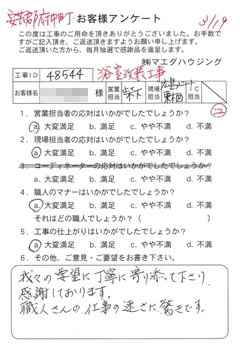 安芸郡府中町 お客様アンケート 3/19
この度は工事のご用命を頂きありがとうございました。お手数で
すがご記入頂き、ご返送頂きますようお願い申し上げます。
ご返送頂いた方から、毎月抽選で感謝品を進呈します。
㈱マエダハウジング
工事ID 48544 浴室改装工事
お客様名 営業担当 現場担当
1. 営業担当者の応対はいかがでしたでしょうか?
a)大変満足 b. 満足 c. やや不満 d. 不満
2. 現場担当者の応対はいかがでしたでしょうか?
a)大変満足 b. 満足 c. やや不満 d. 不満
3. コーディネーターの応対はいかがでしたでしょうか?
a. 大変満足 b. 満足 c. やや不満 d. 不満
4. 職人のマナーはいかがでしたでしょうか?
a)大変満足 b. 満足 c. やや不満 d. 不満
それはどの職人でしょうか?(
5. 工事の仕上がりはいかがでしたでしょうか?
a)大変満足 b. 満足 c. やや不満 d. 不満
6. その他、ご意見・ご要望をお書き下さい。
我々の要望に丁寧に寄り添って下さり
感謝しております。
職人さんの仕事の速さに驚きです。